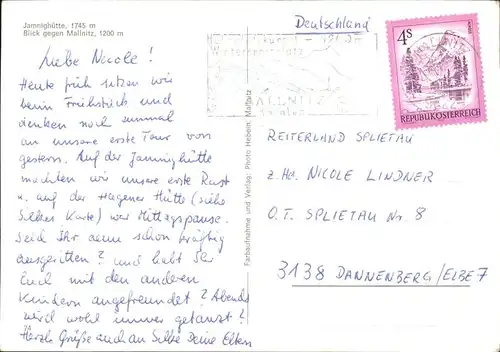 Jamnighütte, 1745 m
Blick gegen Mallnitz, 1200 m
Liebe Nicole!
Heute früh sitzen wir
beim Frühstück und
denken noch einmal
an unsere erste Tour von
gestern. Auf der Jamnighütte
machten wir unsere erste Rast
u. auf der Hagener Hütte (siehe
Silber Karte) war Mittagspause.
Seid Ihr denn schon kräftig
ausgeritten? Und habt Ihr
Euch mit den anderen
Kindern angefreundet? Abends
wird wohl immer getanzt?
Herzl. Grüße auch an Silke Deine Eltern
Farbaufnahme und Verlag: Photo Hebein, Mallnitz
Deutschland
MALLNITZ
4S
REPUBLIK ÖSTERREICH
REITERLAND SPLIETAU
z.Hd. NICOLE LINDNER
O.T. SPLIETAU Nr. 8
3138 DANNENBERG/ELBE 7